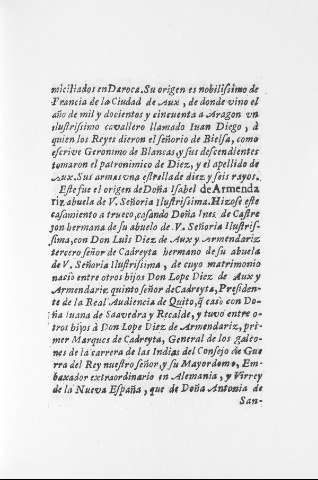 miciliados en Daroca. Su origen es nobilissimo de
Francia de la Ciudad de Aux, de donde vino el
año de mil y docientos y cincuenta a Aragon vn
ilustrissimo cavallero llamado Iuan Diego, à
quien los Reyes dieron el señorio de Bielsa, como
escrive Geronimo de Blancas, y sus descendientes
tomaron el patronimico de Diez, y el apellido de
Aux. Sus armas vna estrella de diez y seis rayos.
Este fue el origen de Doña Isabel de Armenda
riz abuela de V. Señoria Ilustrissima. Hizose este
casamiento a trueco, casando Doña Ines de Castre
jon hermana de su abuelo de V. Señoria Ilustris-
sima, con Don Luis Diez de Aux y Armendariz
tercero señor de Cadreyta hermano de su abuela
de V. Señoria Ilustrissima, de cuyo matrimonio
naciò entre otros hijos Don Lope Diez de Aux y
Armendariz quinto señor de Cadreyta, Presiden-
te de la Real Audiencia de Quito, q̃ casò con Do-
ña Iuana de Saavedra y Recalde, y tuvo entre o-
tros hijos à Don Lope Diez de Armendariz, pri-
mer Marques de Cadreyta, General de los galeo-
nes de la carrera de las Indias del Consejo de Gue
rra del Rey nuestro señor, y su Mayordomo, Em-
baxador extraordinario en Alemania, y Virrey
de la Nueva España, que de Doña Antonia de
San-